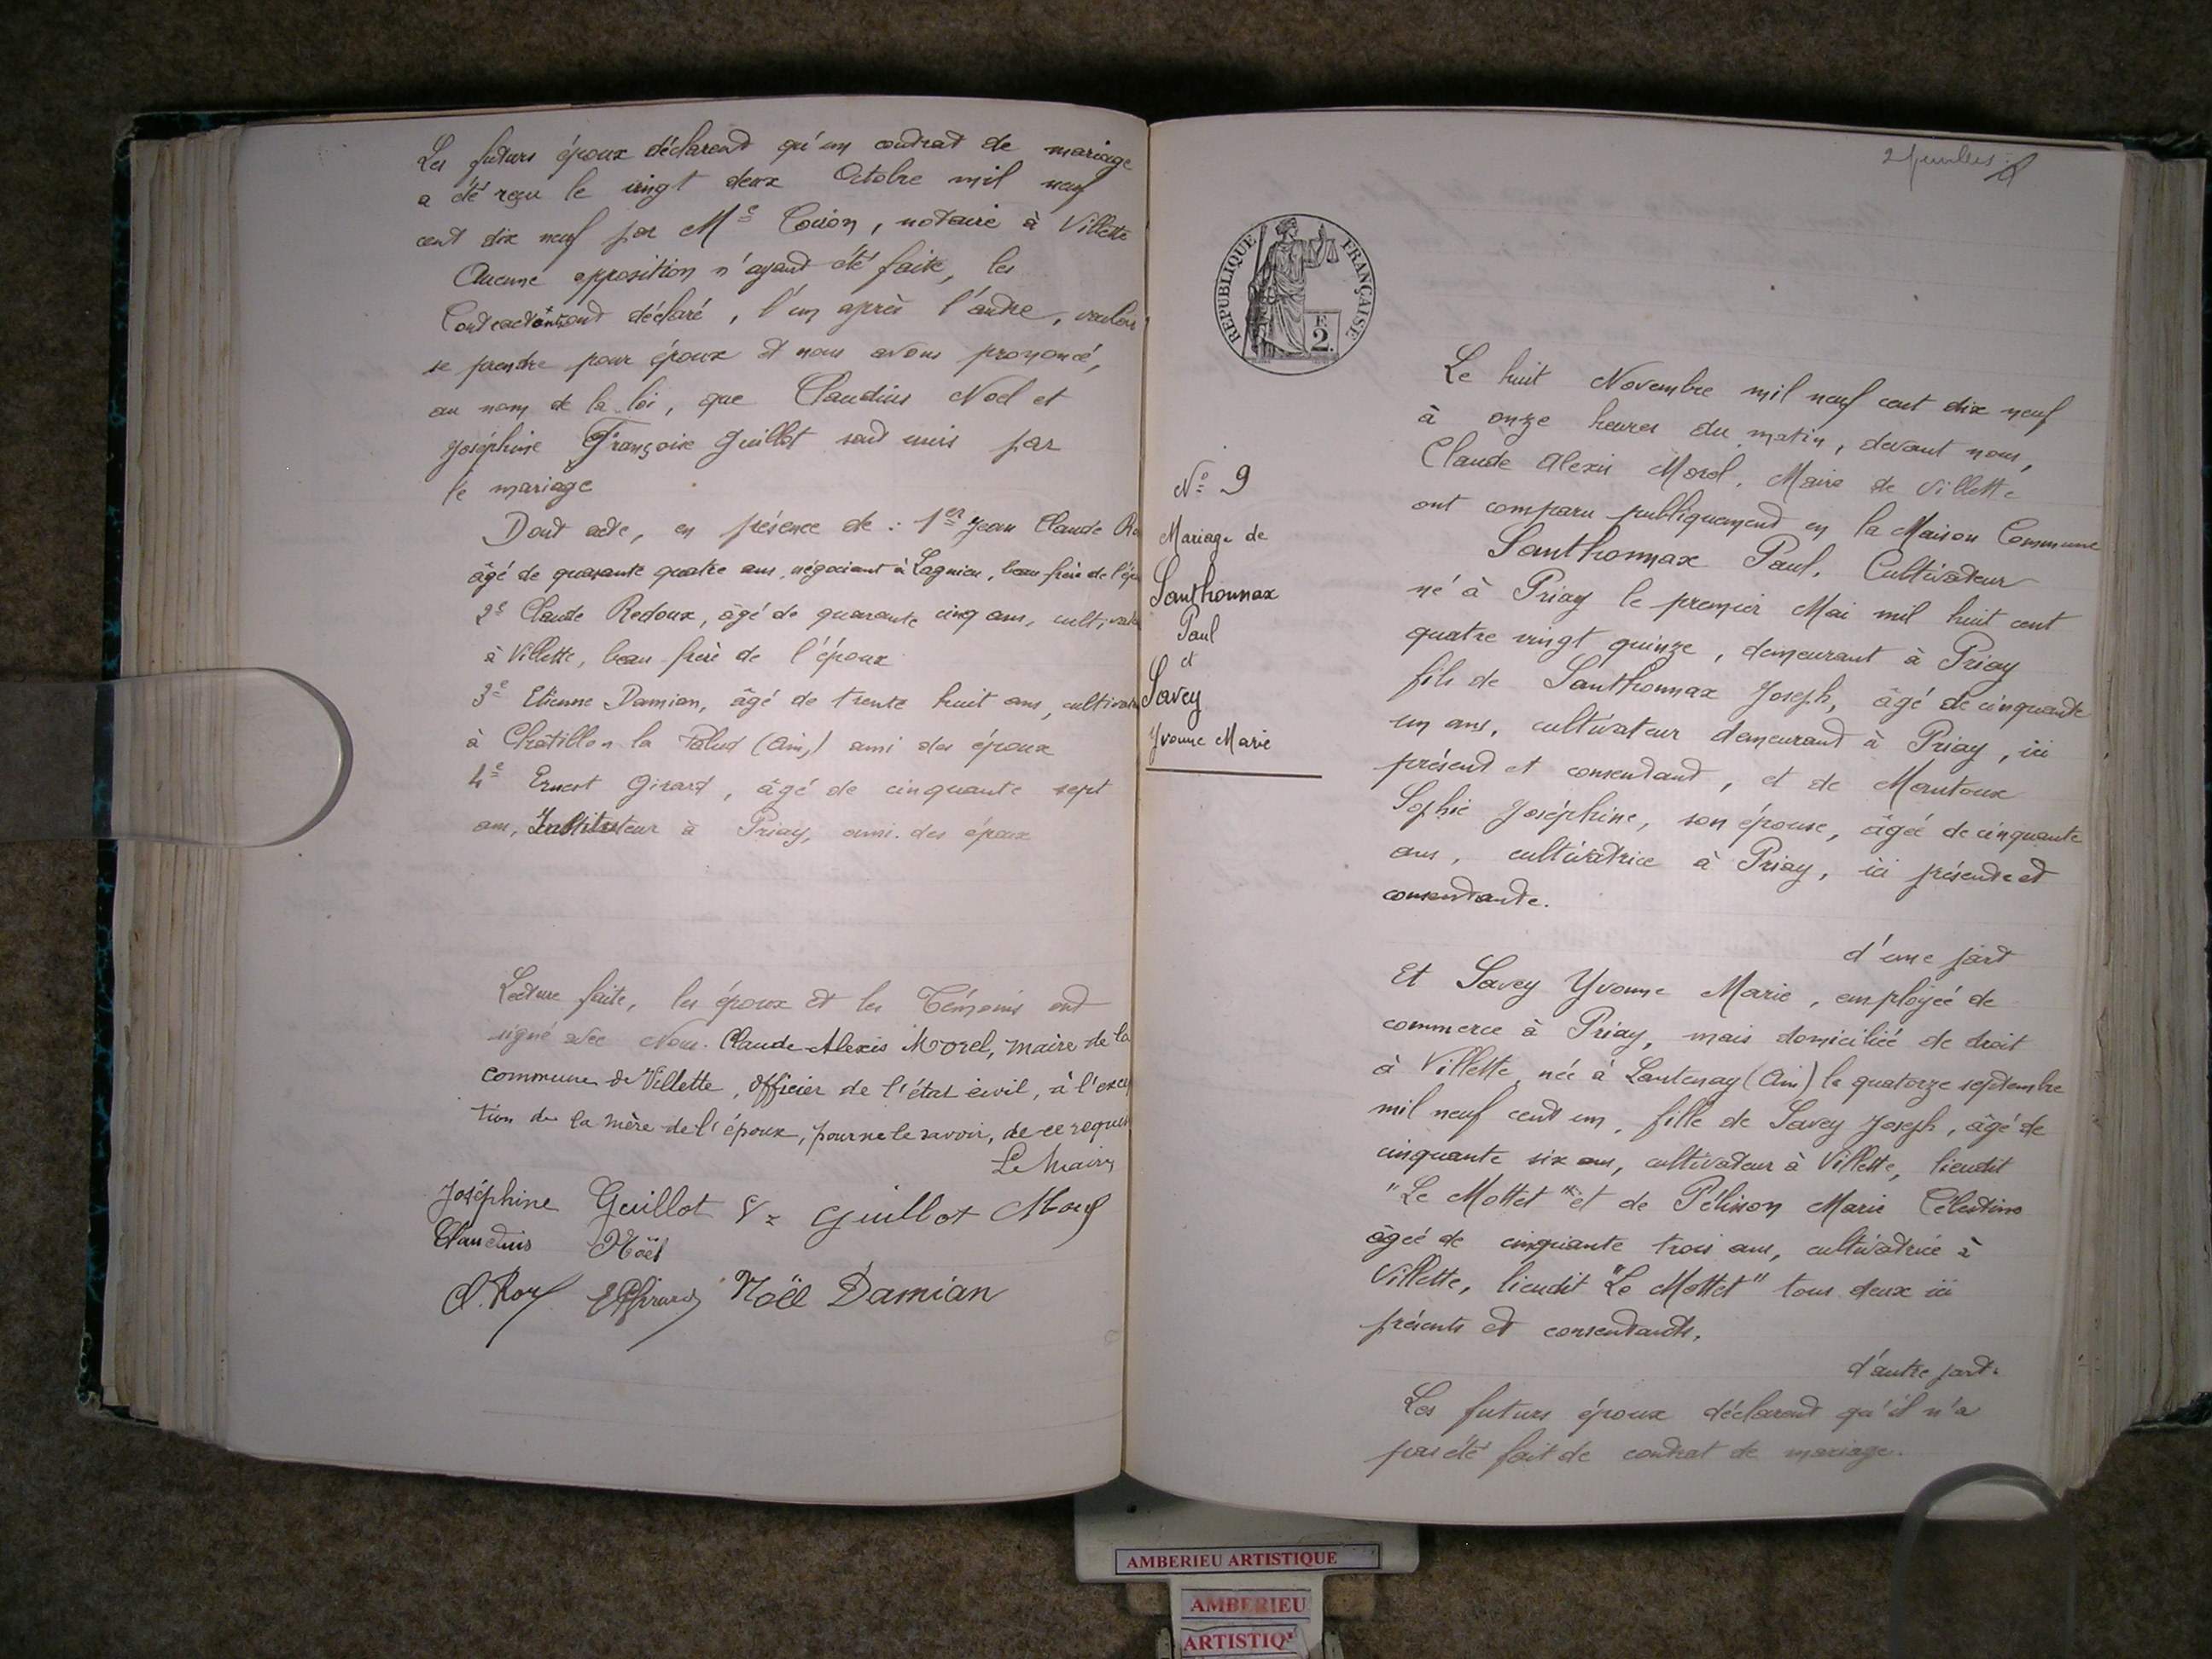 Les futurs époux déclarent qu'un contrat de mariage
a été reçu le vingt deux Octobre mil neuf
cent dix neuf par Me , notaire à Villette
Aucune opposition n'ayant été faite, les
Contractants ont déclaré, l'un après l'autre, vouloir
se prendre pour époux et nous avons prononcé,
au nom de la loi, que Claudius Noel et
Joséphine Françoise Guillot sont unis par
le mariage
Dont acte, en présence de : 1er Jean Claude
âgé de quarante quatre ans, négociant à Lagnieu, beau frère de l'ép
2e Claude Redoux, âgé de quarante cinq ans, cultivate
à Villette, beau frère de l'époux
3e Etienne Damian, âgé de trente huit ans, cultivate
à Châtillon la Palud (Ain) ami des époux
4e Ernest Girard, âgé de cinquante sept
ans, Instituteur à Priay, ami des époux
Lecture faite, les époux et les Témoins ont
signé avec Nous. Claude Alexis Morel, maire de la
commune de Villette, officier de l'état civil, à l'excep
tion de la mère de l'époux, pour ne le savoir, de ce requis
Le Maire
Joséphine Guillot Guillot Morel
Claudius Noël
Noël Damian
2 feuilles
REPUBLIQUE FRANÇAISE
F
2.
N° 9
Mariage de
Santhonnax
Paul
et
Savey
Yvonne Marie
Le huit Novembre mil neuf cent dix neuf
à onze heures du matin, devant nous,
Claude Alexis Morel, Maire de Villette
ont comparu publiquement en la Maison Commune
Santhonnax Paul, Cultivateur
né à Priay le premier Mai mil huit cent
quatre vingt quinze, demeurant à Priay
fils de Santhonnax Joseph, âgé de cinquante
un ans, cultivateur demeurant à Priay, ici
présent et consentant, et de Montoux
Sophie Joséphine, son épouse, âgée de cinquante
ans, cultivatrice à Priay, ici présente et
consentante.
d'une part
Et Savey Yvonne Marie, employée de
commerce à Priay, mais domiciliée de droit
à Villette née à Lantenay (Ain) le quatorze septembre
mil neuf cent un, fille de Savey Joseph, âgé de
cinquante six ans, cultivateur à Villette, lieudit
"Le Mottet" et de Pélisson Marie Célestine
âgée de cinquante trois ans, cultivatrice à
Villette, lieudit "Le Mottet" tous deux ici
présents et consentants.
d'autre part.
Les futurs époux déclarent qu'il n'a
pas été fait de contrat de mariage.
AMBERIEU ARTISTIQUE
AMBERIEU
ARTISTIQ